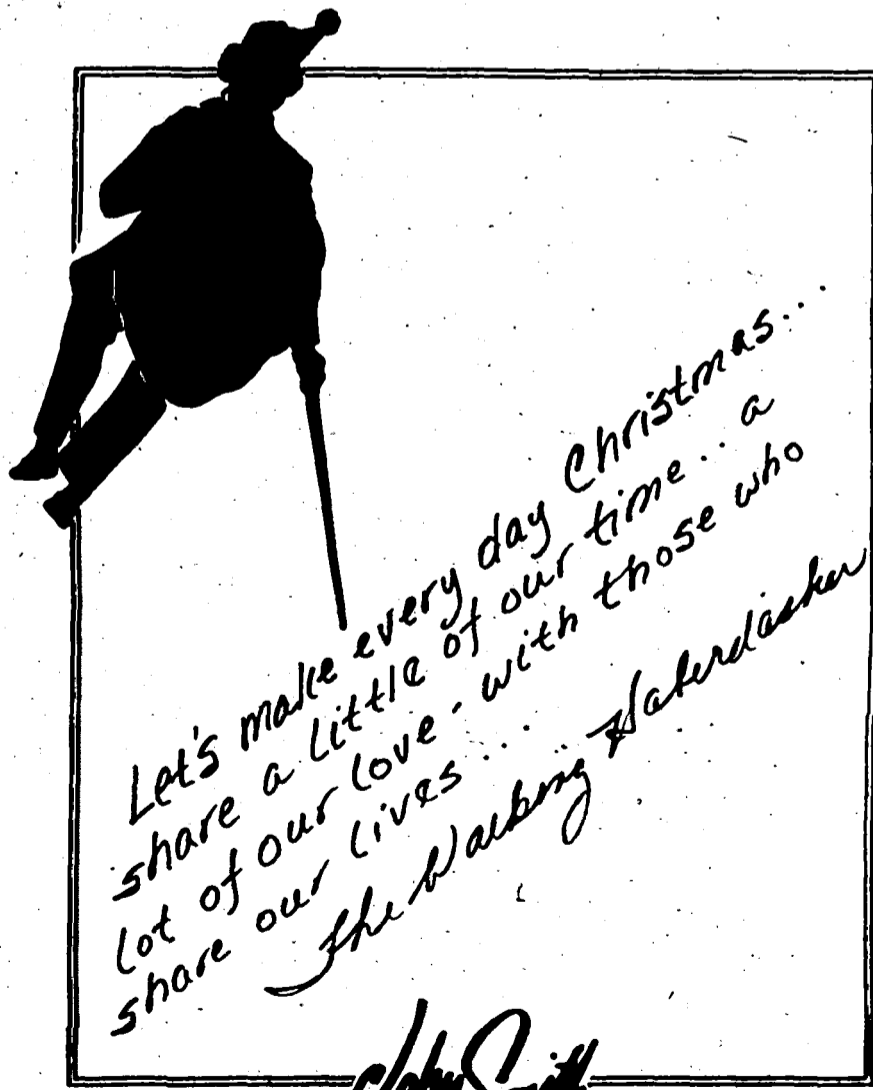 Let's make every day Christmas...
share a little of our time.. a
lot of our love - with those who
share our lives...
The Walking Haberdasher
John Smith